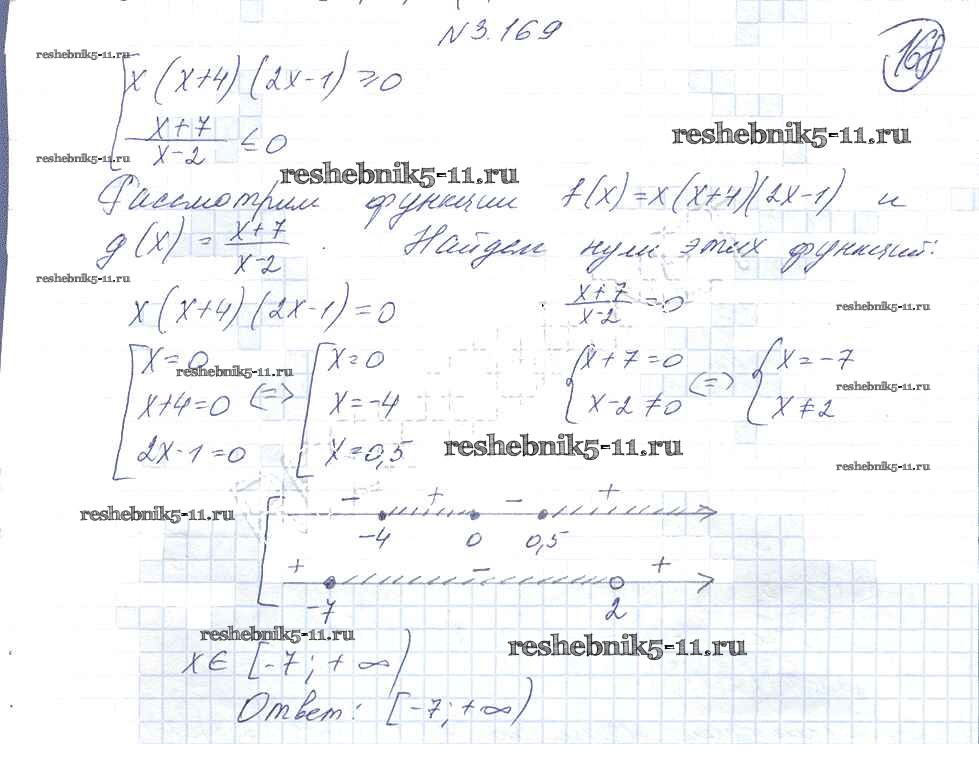 N 3.169
168
reshebnik5-11.ru
x (x+4) (2x-1) ≥ 0
reshebnik5-11.ru
x+7
x-2 ≤ 0
reshebnik5-11.ru
reshebnik5-11.ru
Рассмотрим функции f(x) = x(x+4)(2x-1) и
g(x) = x+7
x-2 . Найдем нули этих функций:
reshebnik5-11.ru
x (x+4) (2x-1) = 0
x+7
x-2 = 0
reshebnik5-11.ru
x = 0
x+4 = 0
2x-1 = 0
<=>
x = 0
x = -4
x = 0,5
reshebnik5-11.ru
x+7 = 0
x-2 ≠ 0
<=>
x = -7
x ≠ 2
reshebnik5-11.ru
reshebnik5-11.ru
reshebnik5-11.ru
reshebnik5-11.ru
- + - +
-4 0 0,5
+ - +
-7 2
reshebnik5-11.ru
reshebnik5-11.ru
x ∈ [-7; +∞)
Ответ: [-7; +∞)